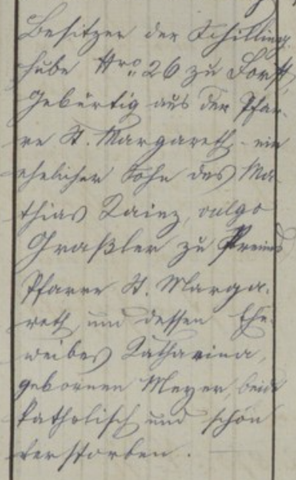 Besitzer der Schilling
hube Nro 26 zu Dorf,
Gebürtig aus der Pfar-
re St. Margareth, ein
ehelicher Sohn des Ma
thias Rainz, vulgo
Graßler zu
Pfarre St. Marga-
reth und dessen Ehe
weibes Katharina,
gebornen Meyer, beide
katholisch und schon
verstorben.